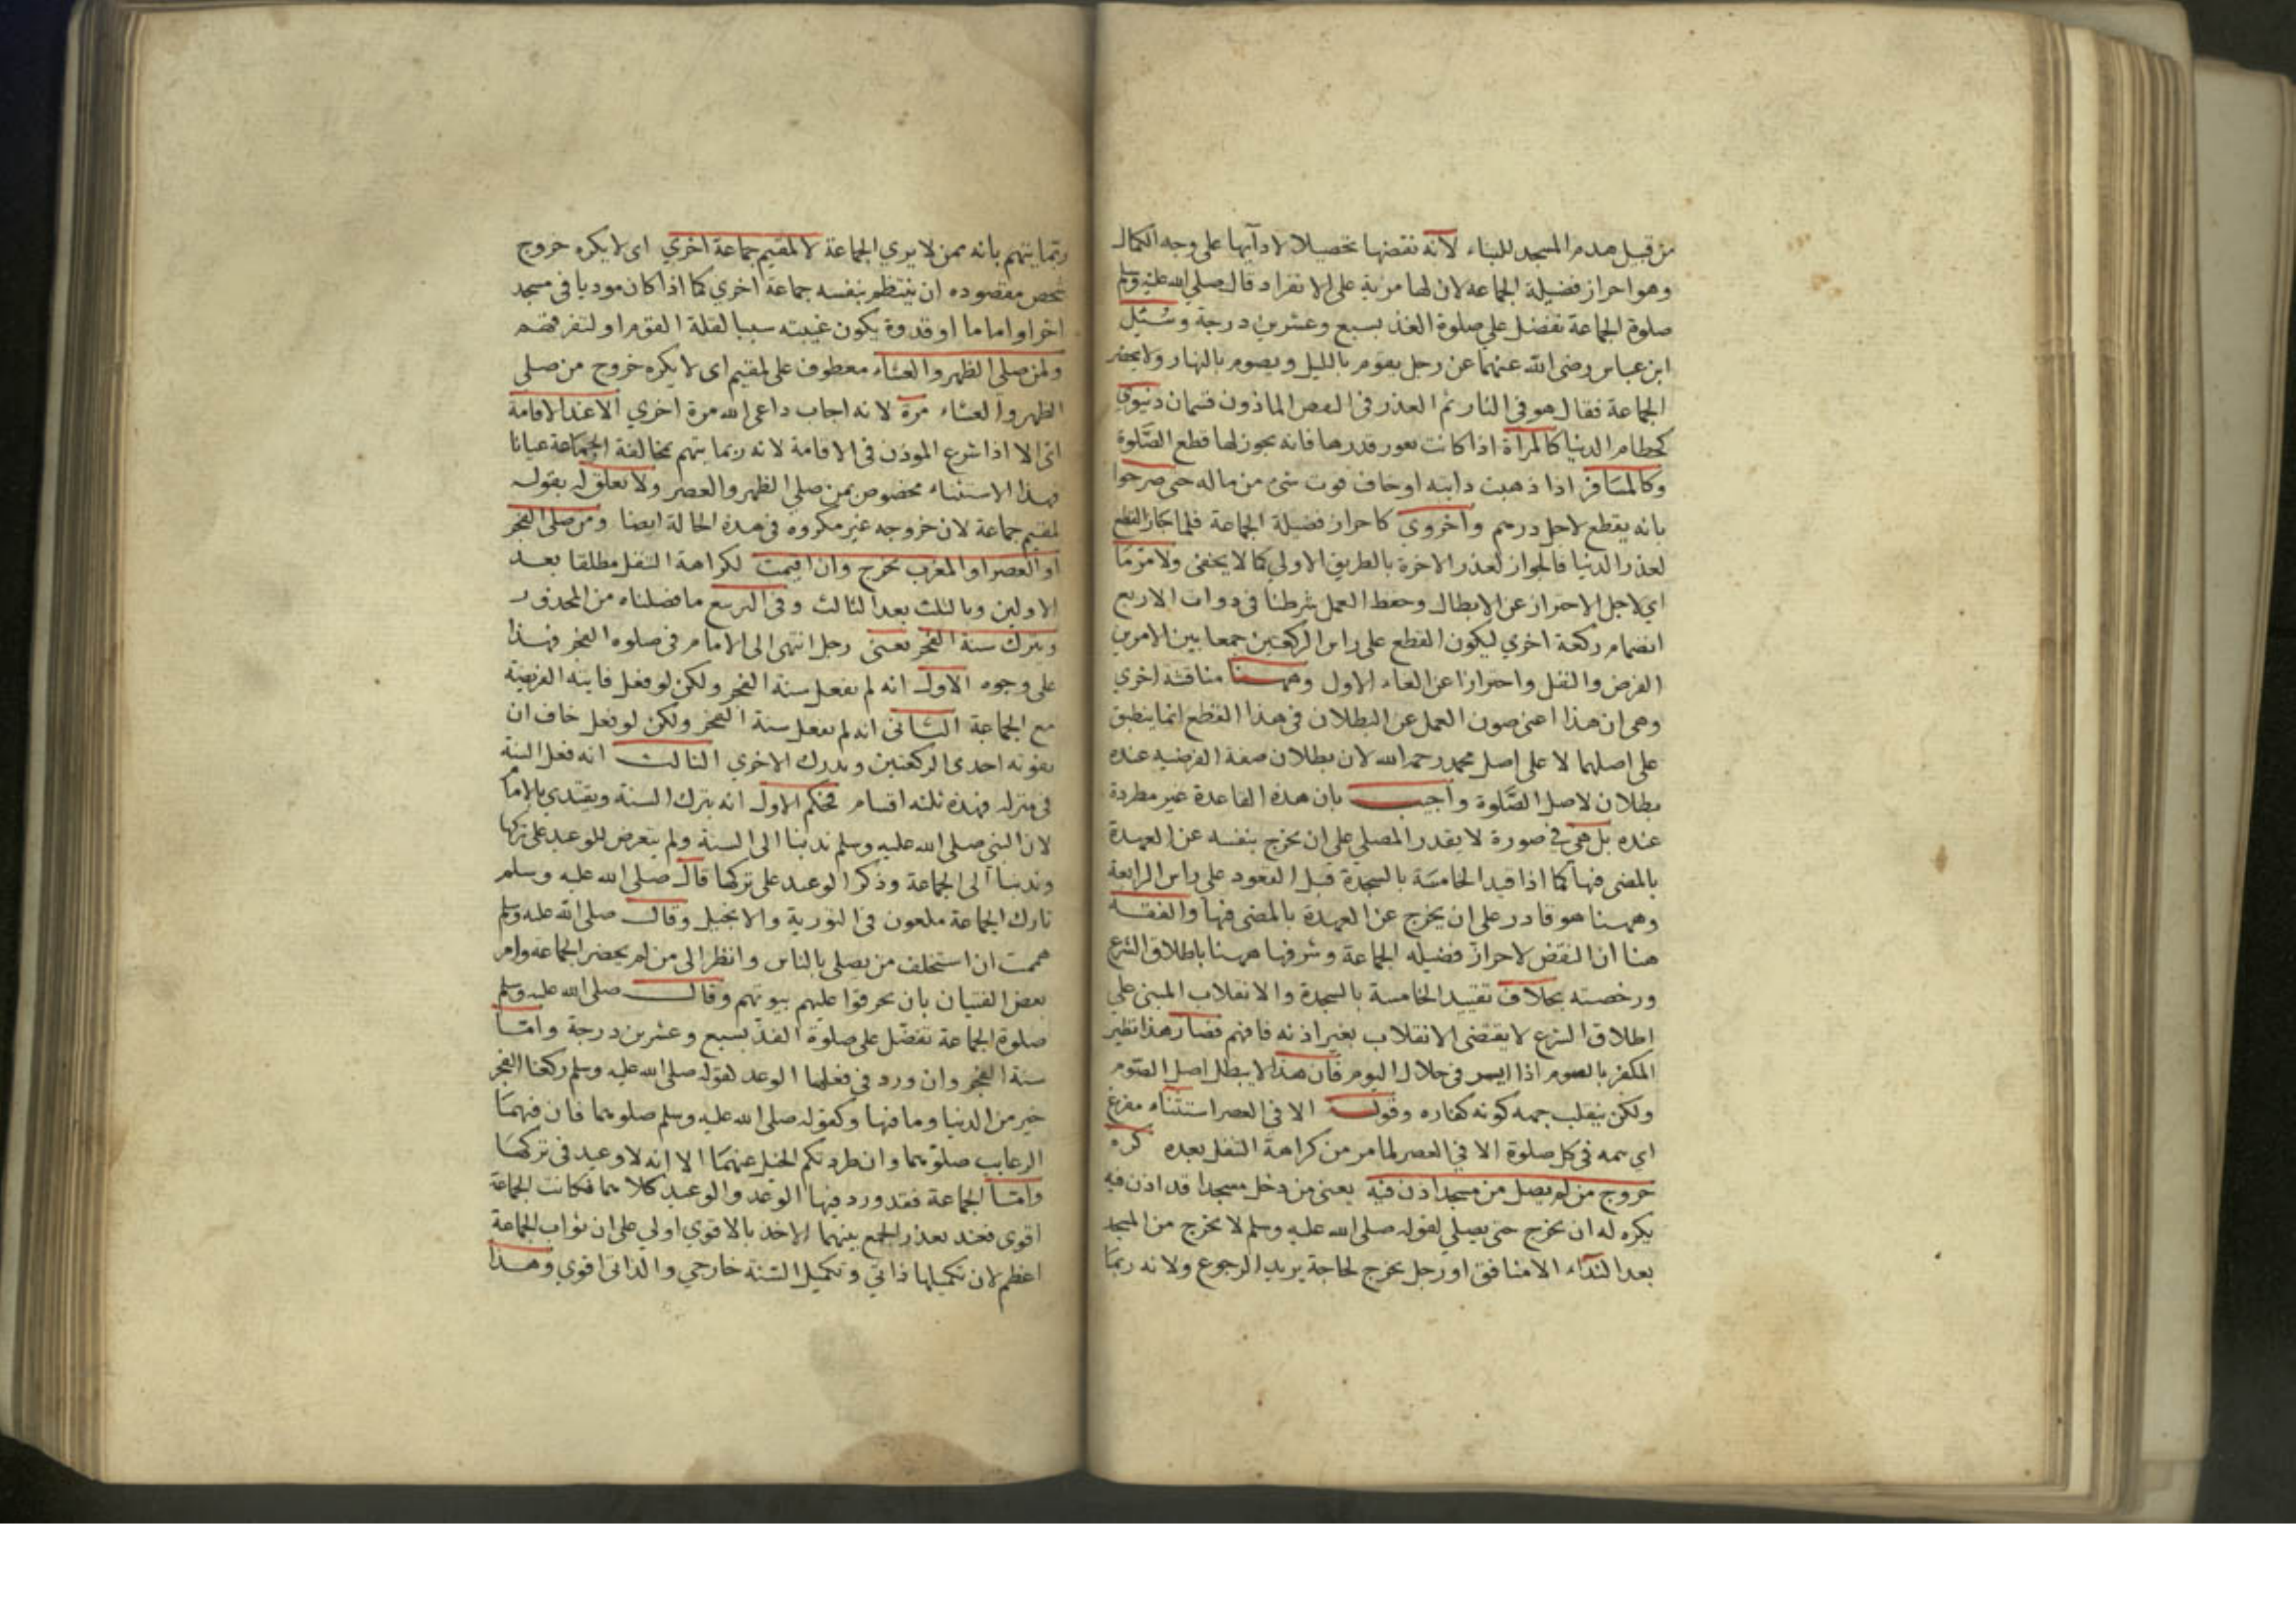 من قبيل هدم المسجد للبناء لانه نقضها تحصيلا لادآيها على وجه الكمال
وهو احراز فضيلة الجماعة لان لها مزية على الانفراد قال صلى الله عليه وسلم
صلوة الجماعة تفضل على صلوة الفذ بسبع وعشرين درجة وسئل
ابن عباس رضى الله عنهما عن رجل يقوم بالليل ويصوم بالنهار ولا يحضر
الجماعة فقال هو فى النار ثم العذر فى النقض الماذون قسمان دنيوي
كحطام الدنيا كالمرأة اذا كانت تفور قدرها فانه يجوز لها قطع الصلوة
وكالمسافر اذا ذهبت دابته او خاف فوت شئ من ماله حتى صرحوا
بانه يقطع لاجل درهم وأخروي كاحراز فضيلة الجماعة فلما جاز القطع
لعذر الدنيا فالجواز لعذر الاخرة بالطريق الاولي كما لا يخفى ولامر ما
اي لاجل الاحتراز عن الابطال وحفظ العمل شرطنا في ذوات الاربع
انضمام ركعة اخري ليكون القطع على راس الركعتين جمعا بين الامرين
الفرض والنفل واحترازا عن الغاء الاول وههنا مناقشة اخري
وهى ان هذا اعنى صون العمل عن البطلان فى هذا القطع انما ينطبق
على اصلهما لا على اصل محمد رحمه الله لان بطلان صفة الفرضيه عنده
بطلان لاصل الصلوة وأجيب بان هذه القاعدة غير مطردة
عنده بل هى في صورة لا يقدر المصلي على ان يخرج بنفسه عن العهدة
بالمضى فيها كما اذا قيد الخامسة بالسجدة قبل القعود على راس الرابعة
وههنا هو قادر على ان يخرج عن العهدة بالمضى فيها والفقه
هنا ان النقض لاحراز فضيله الجماعة وشرفها ههنا باطلاق الشرع
ورخصته بخلاف تقييد الخامسة بالسجدة والانقلاب المبنى على
اطلاق الشرع لا يقتضى الانقلاب بغير اذنه فافهم فصار هذا نظير
المكفر بالصوم اذا ايسر فى خلال اليوم فان هذا لا يبطل اصل الصوم
ولكن ينقلب جهه كونه كفاره وقوله الا فى العصر استثناء مفرغ
اي يتمه فى كل صلوة الا في العصر لما مر من كراهة النفل بعده كره
خروج من لم يصل من مسجد اذن فيه يعنى من دخل مسجدا قد اذن فيه
يكره له ان يخرج حتى يصلي لقوله صلى الله عليه وسلم لا يخرج من المسجد
بعد النداء الا منافق او رجل يخرج لحاجة يريد الرجوع ولانه ربما
ربما يتهم بانه ممن لا يري الجماعة لا لمقيم جماعة اخري اى لا يكره خروج
شخص مقصوده ان ينتظم بنفسه جماعة اخري كما اذا كان موذنا فى مسجد
اخر او اماما او قدوة يكون غيبته سببا لقلة القوم او لتفرقهم
ولمن صلى الظهر والعشاء معطوف على لمقيم اى لا يكره خروج من صلى
الظهر والعشاء مرة لانه اجاب داعى الله مرة اخري الا عند الاقامة
اى الا اذا شرع الموذن فى الاقامة لانه ربما يتهم بمخالفة الجماعة عيانا
فهذا الاستثناء مخصوص بمن صلى الظهر والعصر ولا تعلق له بقوله
لمقيم جماعة لان خروجه غير مكروه فى هذه الحالة ايضا ومن صلى الفجر
او العصر او المغرب يخرج وان اقيمت لكراهة التنفل مطلقا بعد
الاولين وبالثلث بعد الثالث وفى التربيع ما فصلناه من المحذور
ويترك سنة الفجر يعنى رجل انتهى الى الامام فى صلوه الفجر فهذا
على وجوه الاول انه لم يفعل سنة الفجر ولكن لو فعل فايته الفريضة
مع الجماعة الثانى انه لم يفعل سنة الفجر ولكن لو فعل خاف ان
يفوته احدى الركعتين ويدرك الاخري الثالث انه فعل السنة
فى منزله فهذه ثلثه اقسام فحكم الاول انه يترك السنة ويقتدي بالامام
لان النبي صلى الله عليه وسلم ندبنا الى السنة ولم يتعرض للوعيد على تركها
وندبنا الى الجماعة وذكر الوعيد على تركها قال صلى الله عليه وسلم
تارك الجماعة ملعون فى التورية والانجيل وقال صلى الله عليه وسلم
هممت ان استخلف من يصلى بالناس وانظر الى من لم يحضر الجماعة وامر
بعض الفتيان بان يحرقوا عليهم بيوتهم وقال صلى الله عليه وسلم
صلوة الجماعة تفضل على صلوة الفذ بسبع وعشرين درجة وامّا
سنة الفجر وان ورد في فعلها الوعد لقوله صلى الله عليه وسلم ركعتا الفجر
خير من الدنيا وما فيها وكقوله صلى الله عليه وسلم صلوهما فان فيهما
الرغايب صلوهما وان طردتكم الخيل عنهما الا انه لا وعيد فى تركها
وامّا الجماعة فقد ورد فيها الوعد والوعيد كلاهما فكانت الجماعة
اقوى فعند تعذر الجمع بينهما الاخذ بالاقوي اولي على ان ثواب الجماعة
اعظم لان تكميلها ذاتي وتكميل السنة خارجي والذاتى اقوي وهذا